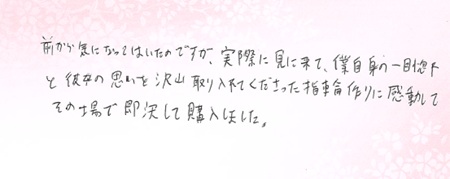 前から気になってはいたのですが、実際に見に来て、僕自身の一目惚れ
と彼女の思いを沢山取り入れてくださった指輪作りに感動して
その場で即決して購入しました。